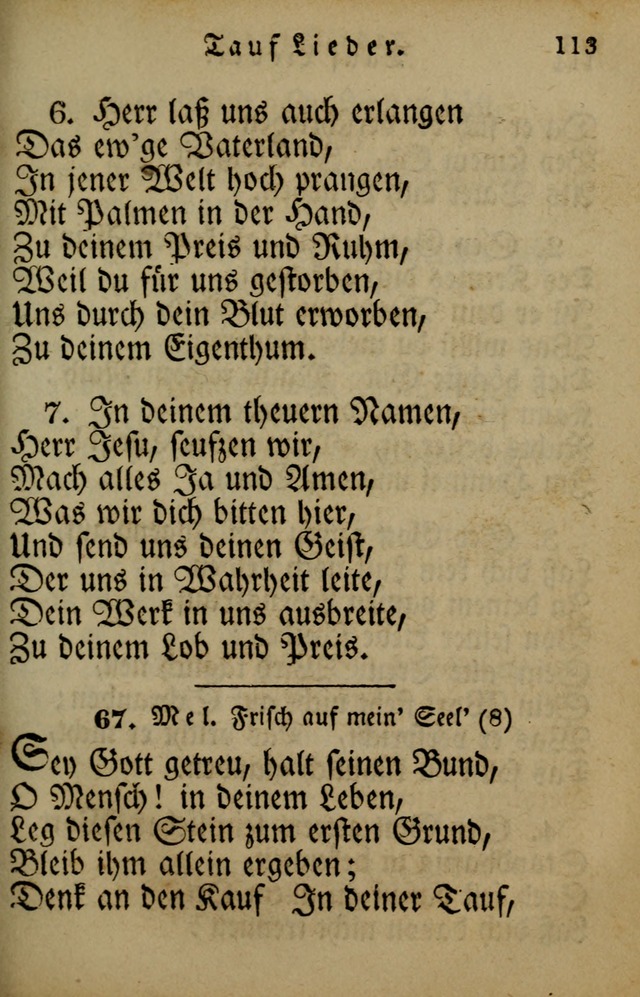 Tauf Lieder. 113
6. Herr laß uns auch erlangen
Das ew'ge Vaterland,
In jener Welt hoch prangen,
Mit Palmen in der Hand,
Zu deinem Preis und Ruhm,
Weil du für uns gestorben,
Uns durch dein Blut erworben,
Zu deinem Eigenthum.
7. In deinem theuern Namen,
Herr Jesu, seufzen wir,
Mach alles Ja und Amen,
Was wir dich bitten hier,
Und send uns deinen Geist,
Der uns in Wahrheit leite,
Dein Werk in uns ausbreite,
Zu deinem Lob und Preis.
67. Mel. Frisch auf mein' Seel' (8)
Sey Gott getreu, halt seinen Bund,
O Mensch! in deinem Leben,
Leg diesen Stein zum ersten Grund,
Bleib ihm allein ergeben;
Denk an den Kauf In deiner Tauf,